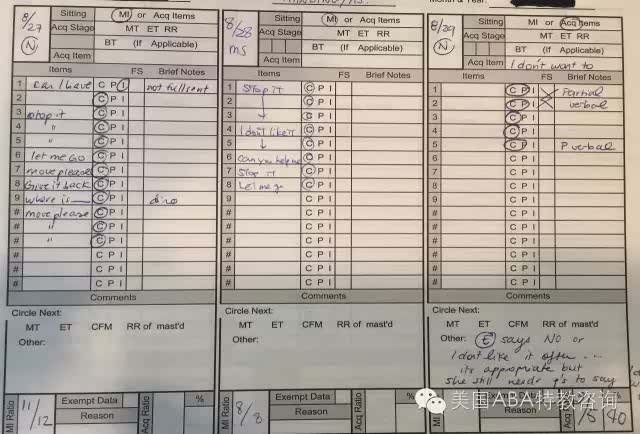 Month & Year:
8/27
N
Sitting MI or Acq Items
Acq Stage MT ET RR
BT (If Applicable)
Acq Item
Items FS Brief Notes
1 can I have C P I not full sent
2 C P I
3 stop it C P I
4 " C P I
5 " C P I
6 let me go C P I
7 move please C P I
8 Give it back C P I
9 where is C P I
# move please C P I
# " C P I
# " C P I
# C P I
# C P I
Comments
Circle Next:
MT ET CFM RR of mast'd
Other:
MI Ratio 11/12 Exempt Data Acq Ratio %
Reason
8/28
ms
Sitting MI or Acq Items
Acq Stage MT ET RR
BT (If Applicable)
Acq Item
Items FS Brief Notes
1 Stop it C P I
2 C P I
3 C P I
4 I don't like it C P I
5 C P I
6 can you help me C P I
7 Stop it C P I
8 Let me go C P I
9 C P I
# C P I
# C P I
# C P I
# C P I
# C P I
Comments
Circle Next:
MT ET CFM RR of mast'd
Other:
MI Ratio 8/8 Exempt Data Acq Ratio %
Reason
8/29
N
Sitting MI or Acq Items
Acq Stage MT ET RR
BT (If Applicable)
Acq Item I don't want to
Items FS Brief Notes
1 C P I Partial
2 C P I verbal
3 C P I
4 C P I
5 C P I P verbal
6 C P I
7 C P I
8 C P I
9 C P I
# C P I
# C P I
# C P I
# C P I
# C P I
Comments
Circle Next:
MT ET CFM RR of mast'd
Other: E says NO or
I dont like it often....
its appropriate but
she still needs p's to say
MI Ratio Exempt Data Acq /5 40 %
Reason
美国ABA特教咨询